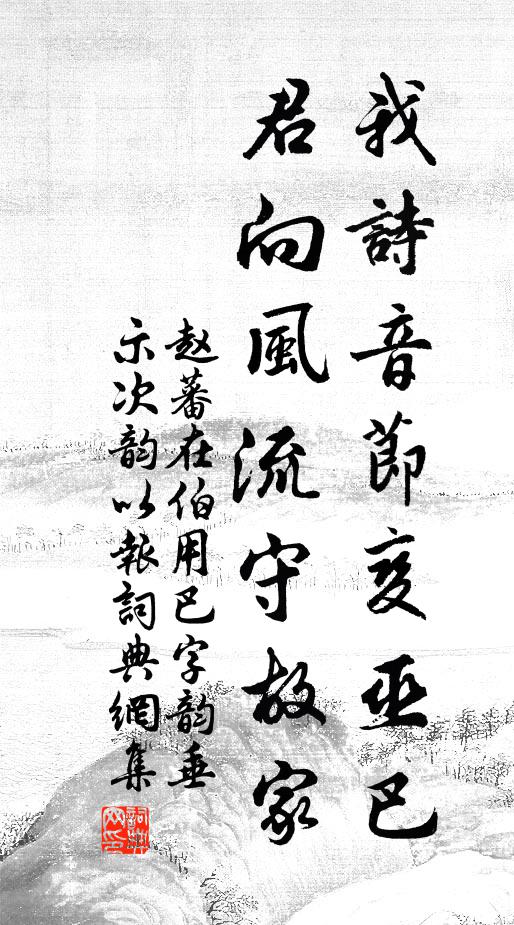 我詩音節变巫巴
君向風流守故家
赵蕃在伯用巴字韵垂
示次韵以報詞典網集
詞典网印